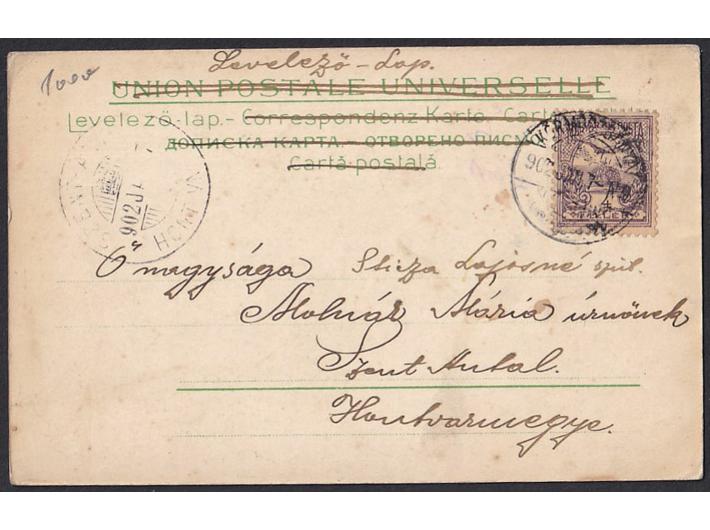 1000
Levelező-Lap.
UNION POSTALE UNIVERSELLE
Levelező-lap.- Correspondenz Karte. Cart
ДОПИСНА КАРТА. – ОТВОРЕНО ПИСМ
Cartă postală.
902 JU
HONT VM
902
Ő nagysága Sticza Lajosné szül.
Molnár Mária úrnőnek
Szent Antal.
Hontvarmegye.